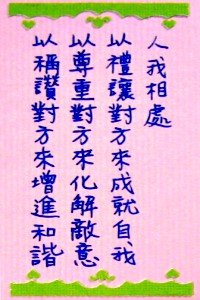 人我相處
以禮讓對方來成就自我
以尊重對方來化解敵意
以稱讚對方來增進和諧